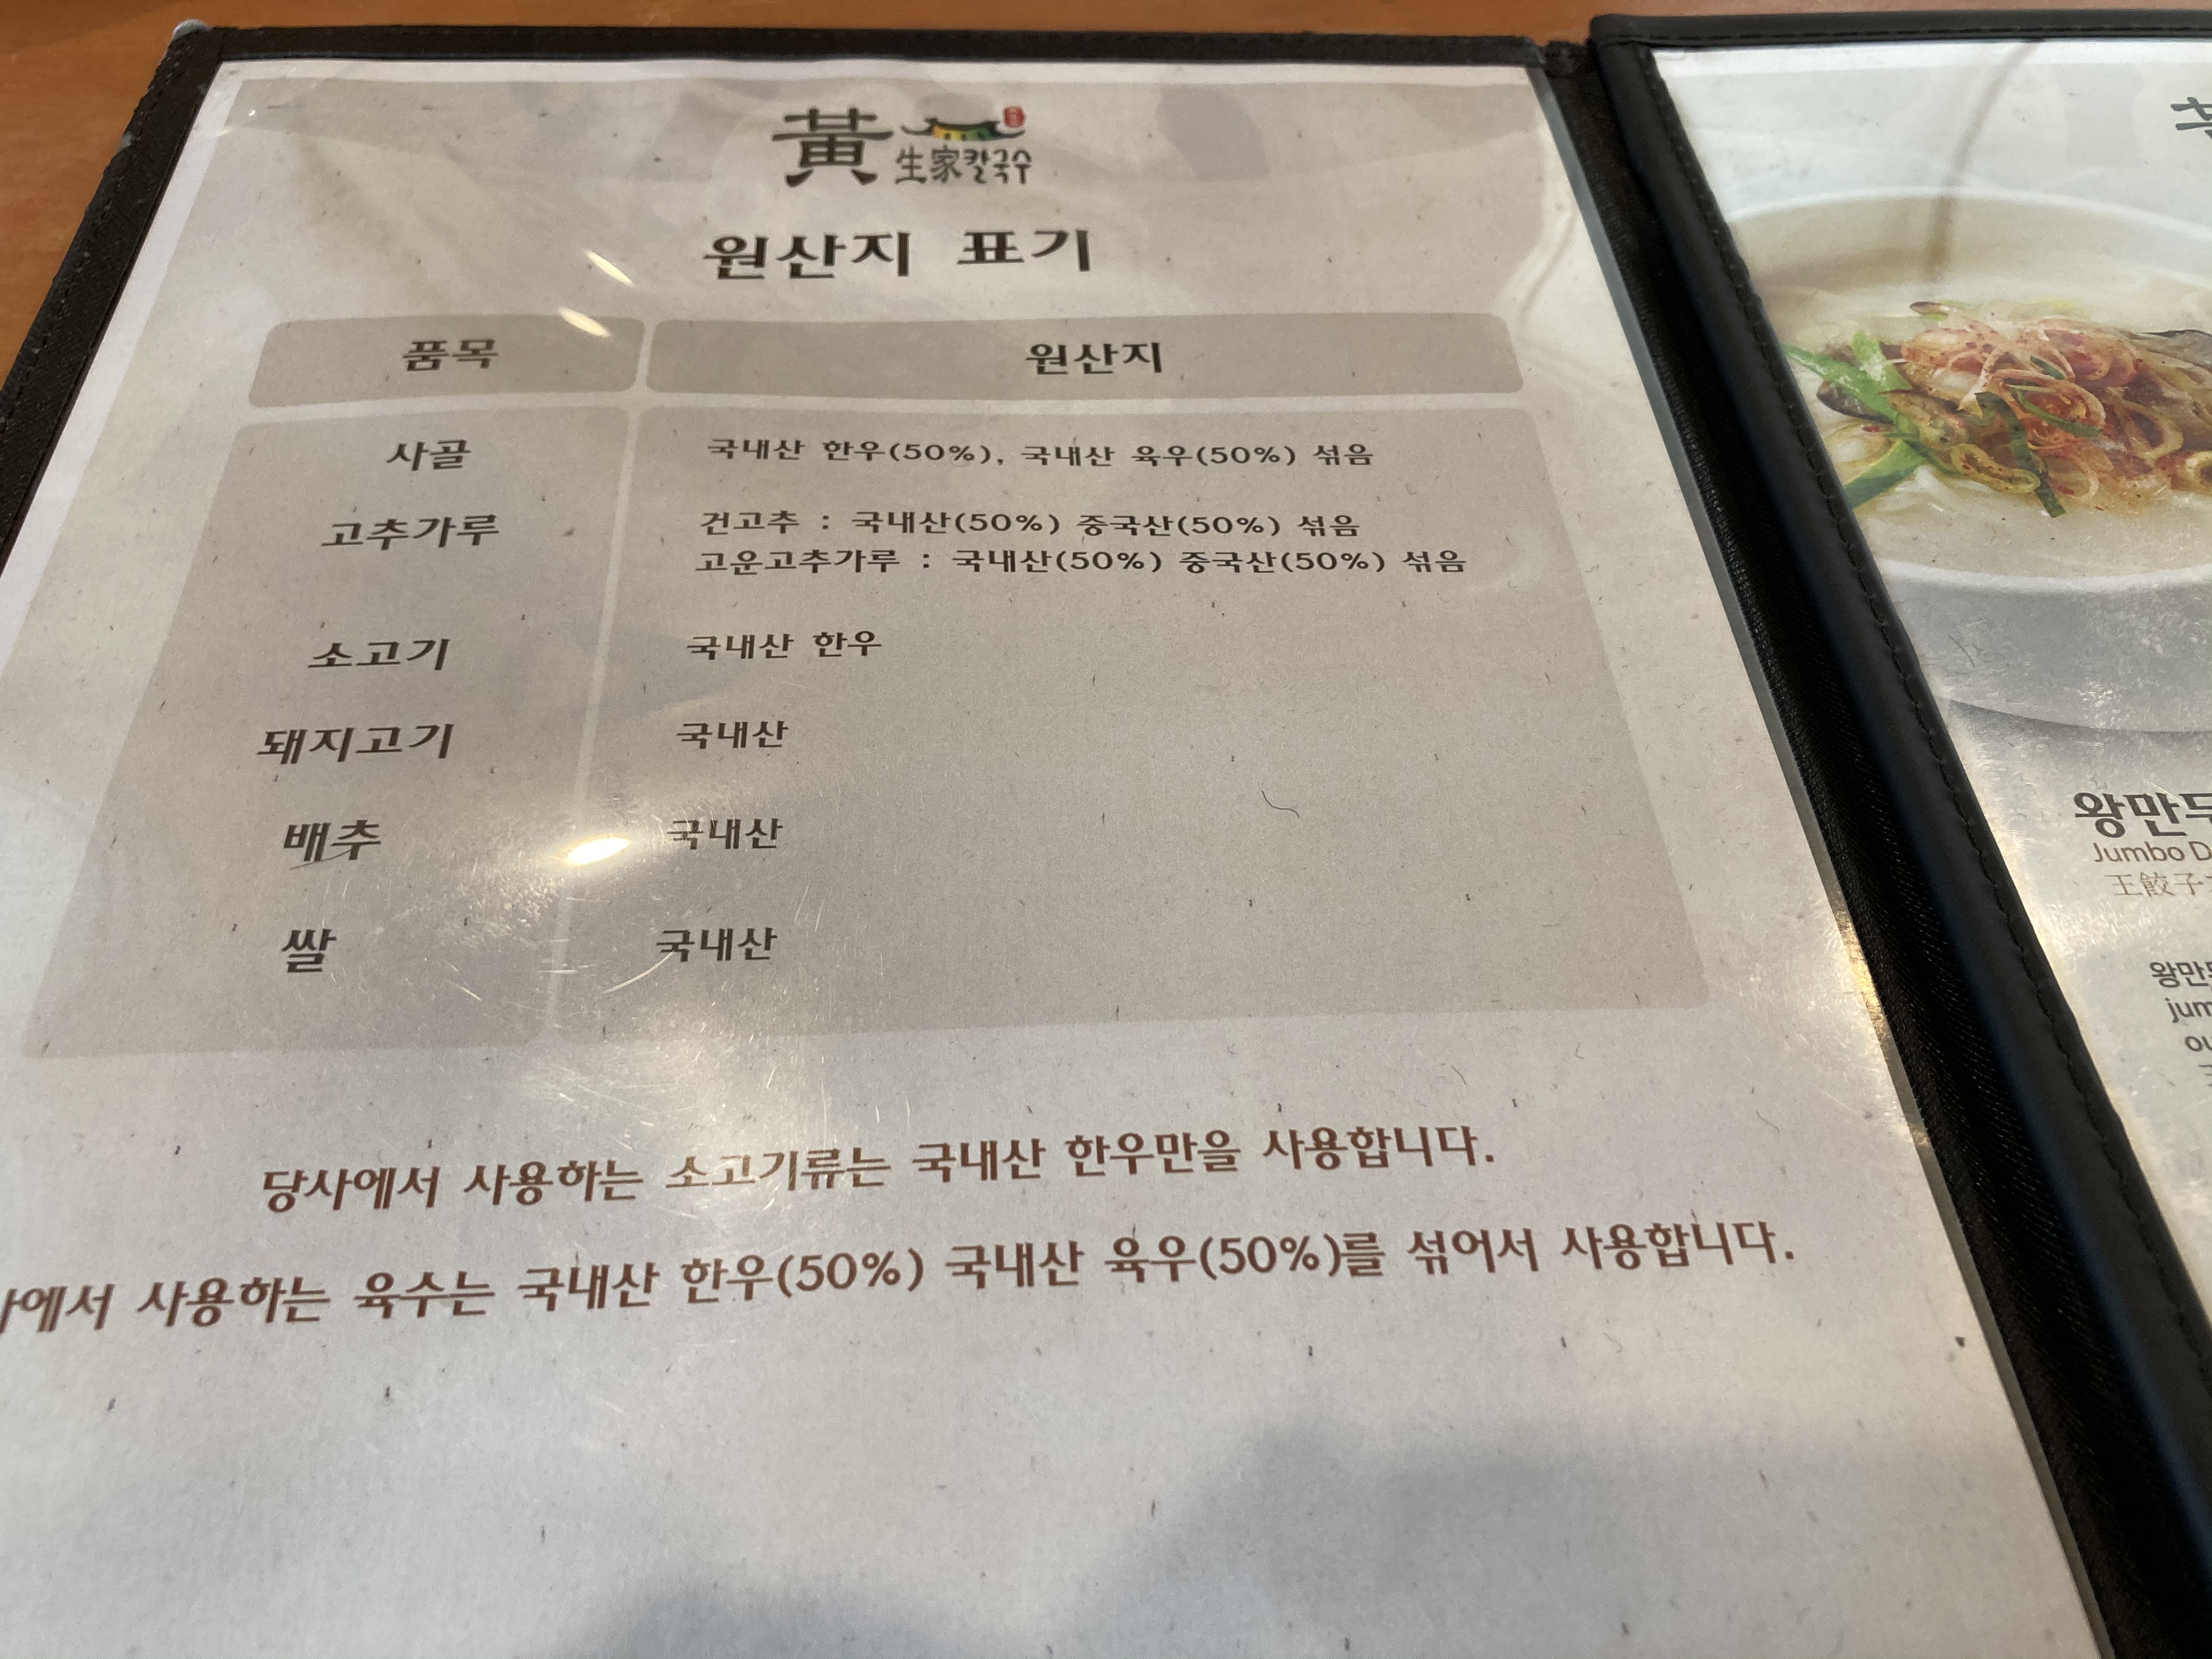 黃生家칼국수
원산지 표기
품목 원산지
사골 국내산 한우(50%), 국내산 육우(50%) 섞음
고추가루 건고추 : 국내산(50%) 중국산(50%) 섞음
고운고추가루 : 국내산(50%) 중국산(50%) 섞음
소고기 국내산 한우
돼지고기 국내산
배추 국내산
쌀 국내산
당사에서 사용하는 소고기류는 국내산 한우만을 사용합니다.
사에서 사용하는 육수는 국내산 한우(50%) 국내산 육우(50%)를 섞어서 사용합니다.
왕만두
Jumbo D
王餃子
왕만두
jum